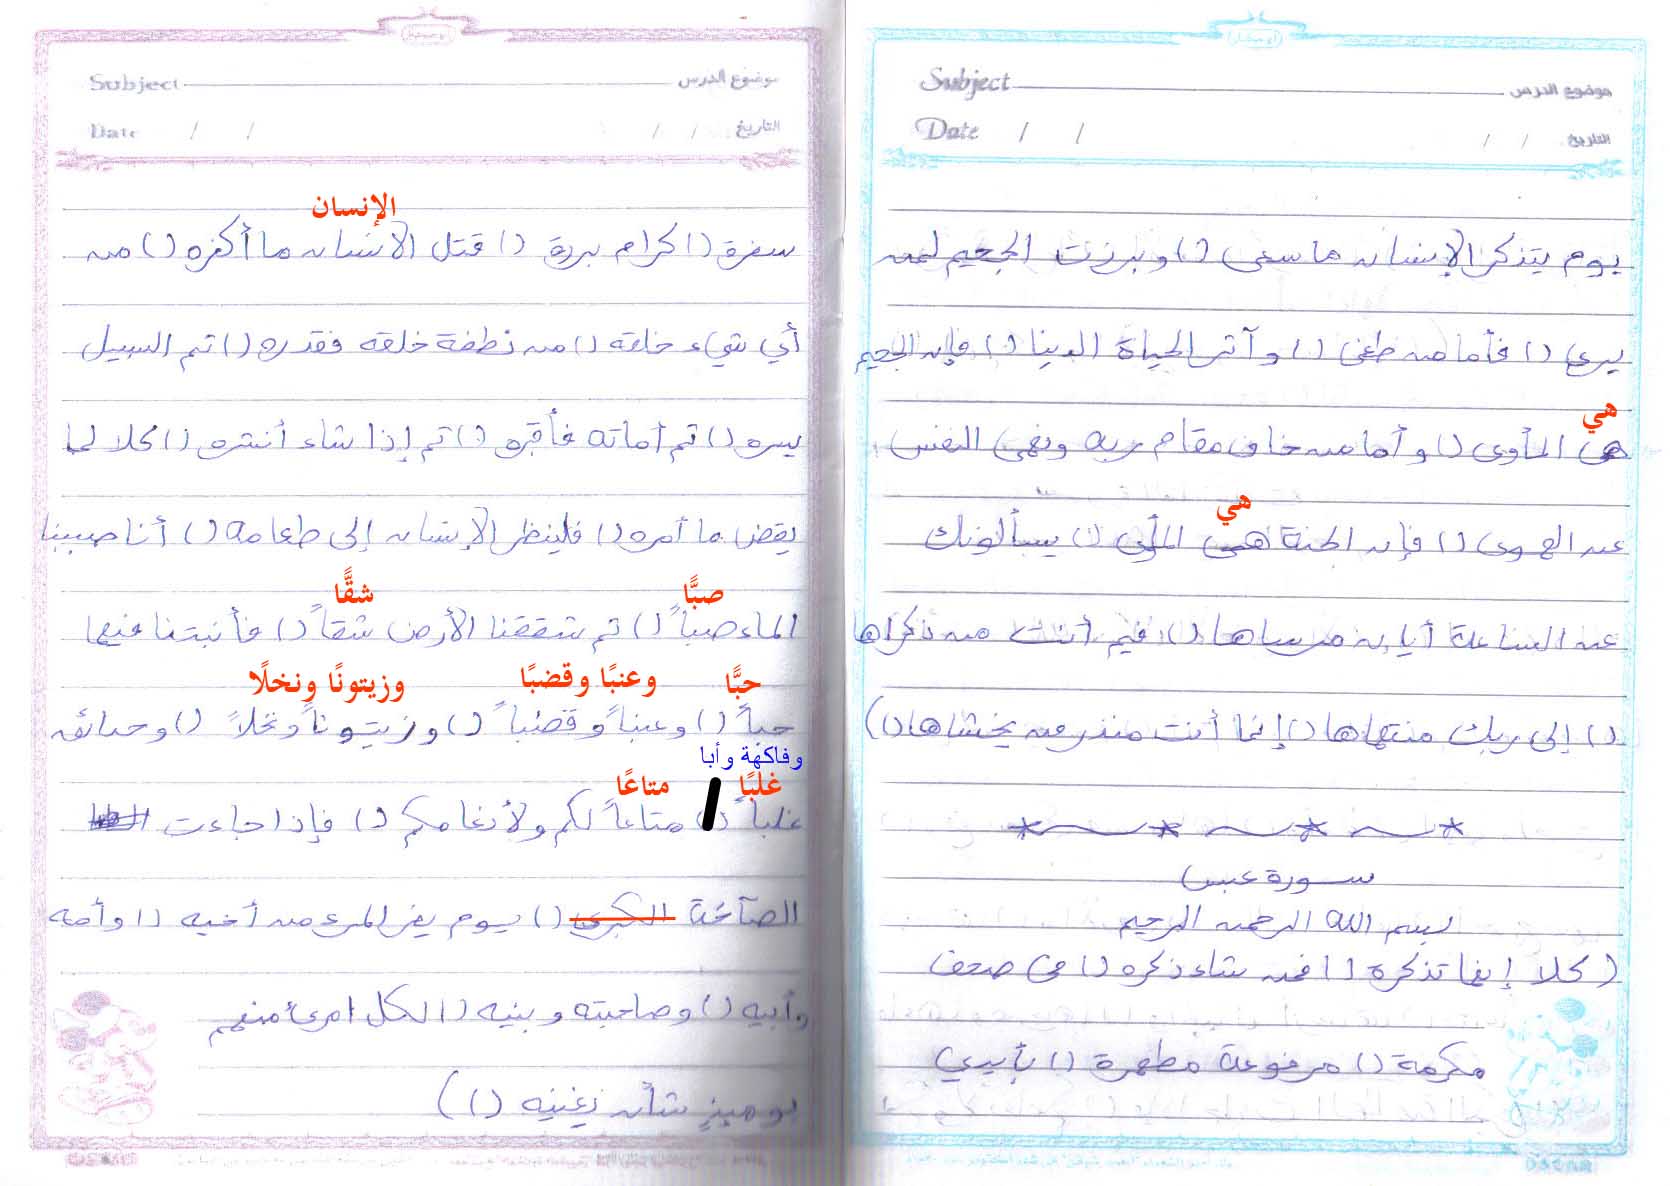 Subject موضوع الدرس
Date / / التاريخ / /
يوم يتذكر الإنسان ما سعى ( ) وبرزت الجحيم لمن
يرى ( ) فأما من طغى ( ) وآثر الحياة الدنيا ( ) فإن الجحيم
هي
هى المأوى ( ) وأما من خاف مقام ربه ونهى النفس
هي
عن الهوى ( ) فإن الجنة هى المأوى ( ) يسألونك
عن الساعة أيان مرساها ( ) فيم أنت من ذكراها
( ) إلى ربك منتهاها ( ) إنما أنت منذر من يخشاها ( )
سورة عبس
بسم الله الرحمن الرحيم
( كلا إنها تذكرة ( ) فمن شاء ذكره ( ) في صحف
مكرمة ( ) مرفوعة مطهرة ( ) بأيدي
Subject موضوع الدرس
Date / / التاريخ / /
الإنسان
سفرة ( ) كرام بررة ( ) قتل الانسان ما أكفره ( ) من
أي شيء خلقه ( ) من نطفة خلقه فقدره ( ) ثم السبيل
يسره ( ) ثم أماته فأقبره ( ) ثم إذا شاء أنشره ( ) كلا لما
يقض ما أمره ( ) فلينظر الإنسان إلى طعامه ( ) أنا صببنا
صبًّا شقًّا
الماء صباً ( ) ثم شققنا الأرض شقاً ( ) فأنبتنا فيها
حبًّا وعنبًا وقضبًا وزيتونًا ونخلًا
حباً ( ) وعنباً وقضباً ( ) وزيتوناً ونخلاً ( ) وحدائق
وفاكهة وأبا
غلبًا متاعًا
غلباً ( ) متاعاً لكم ولأنعامكم ( ) فإذا جاءت
الصآخة الكبرى ( ) يوم يفر المرء من أخيه ( ) وأمه
وأبيه ( ) وصاحبته وبنيه ( ) لكل امرئ منهم
يومئذٍ شأن يغنيه ( ) )